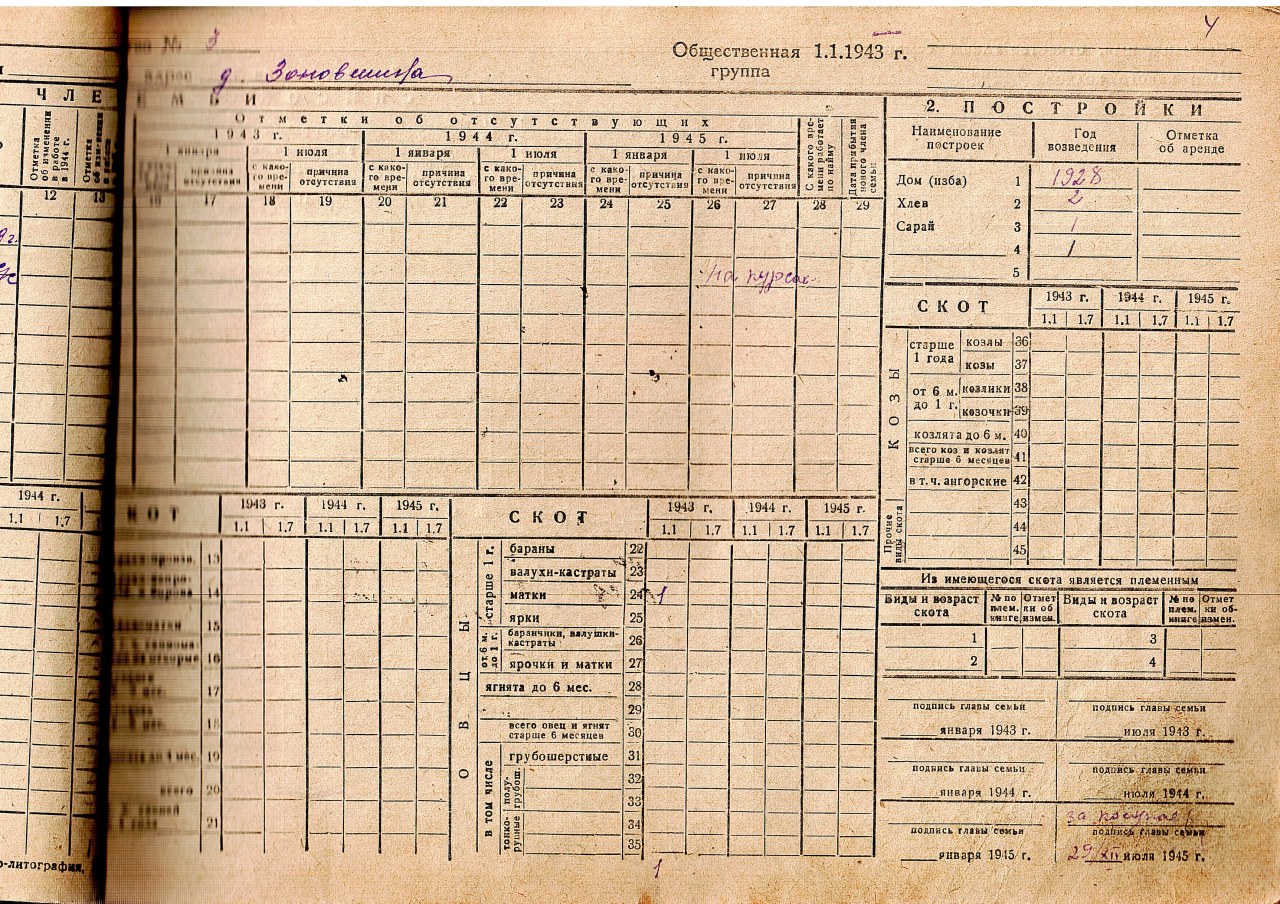 № 3
Общественная 1.1.1943 г.
группа
4
д.
ЧЛЕ
ЕМЬИ
Отметки об отсутствующих
1943 г. 1944 г. 1945 г.
1 января 1 июля 1 января 1 июля 1 января 1 июля
причина отсутствия
с какого времени причина отсутствия
с какого времени причина отсутствия
с какого времени причина отсутствия
с какого времени причина отсутствия
с какого времени причина отсутствия
С какого времени работает по найму
Дата прибытия нового члена семьи
Отметка об изменении в работе в 1944 г.
Отметка
12 13
16 17 18 19 20 21 22 23 24 25 26 27 28 29
на курсах
2. ПОСТРОЙКИ
Наименование построек Год возведения Отметка об аренде
Дом (изба) 1 1928
Хлев 2 2
Сарай 3 1
4 1
5
СКОТ 1943 г. 1944 г. 1945 г.
1.1 1.7 1.1 1.7 1.1 1.7
КОЗЫ
старше 1 года козлы 36
козы 37
от 6 м. до 1 г. козлики 38
козочки 39
козлята до 6 м. 40
всего коз и козлят старше 6 месяцев 41
в т. ч. ангорские 42
Прочие виды скота
43
44
45
Из имеющегося скота является племенным
Виды и возраст скота № по плем. книге Отметки об измен. Виды и возраст скота № по плем. книге Отметки об измен.
1 3
2 4
подпись главы семьи подпись главы семьи
января 1943 г. июля 1943 г.
подпись главы семьи подпись главы семьи
января 1944 г. июля 1944 г.
подпись главы семьи подпись главы семьи
января 1945 г. 29/VII июля 1945 г.
1944 г.
1.1 1.7
КОТ 1943 г. 1944 г. 1945 г.
1.1 1.7 1.1 1.7 1.1 1.7
13
14
15
16
17
18
19
всего 20
21
СКОТ 1943 г. 1944 г. 1945 г.
1.1 1.7 1.1 1.7 1.1 1.7
ОВЦЫ
старше 1 г.
бараны 22
валухи-кастраты 23
матки 24 1
ярки 25
от 6 м. до 1 г.
баранчики, валушки-кастраты 26
ярочки и матки 27
ягнята до 6 мес. 28
29
всего овец и ягнят старше 6 месяцев 30
в том числе
грубошерстные 31
полугрубош. 32
33
тонкорунные 34
35
1
о-литография,